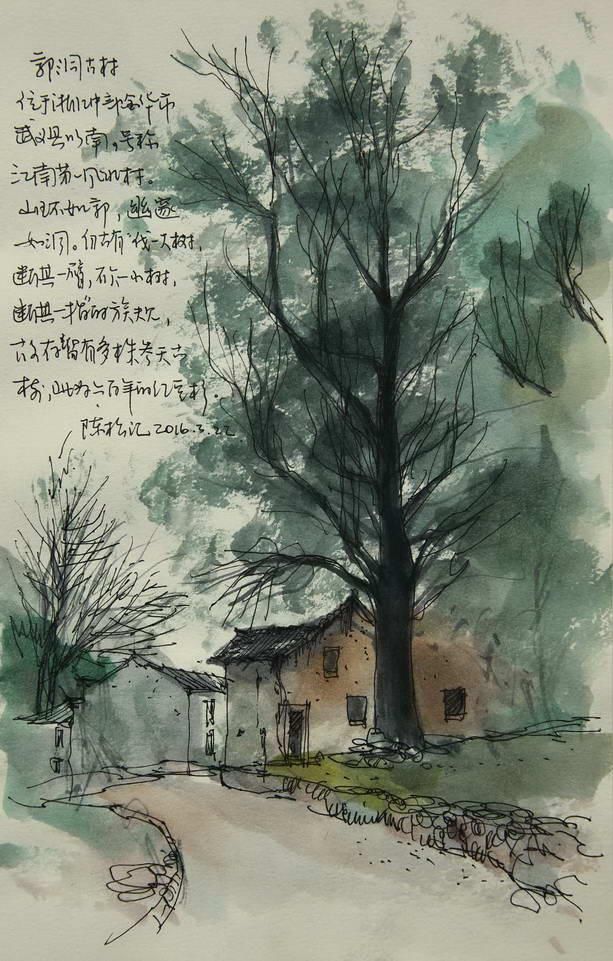 郭洞古村
位于浙江中部金华市
武义县以南,号称
江南第一风水村。
山环如郭,幽邃
如洞。古有“伐一大树,
断其一臂,砍一小树,
断其一指”的族规,
故存留有多株参天古
树,此为二百年的红豆杉。
陈松记 2016.3.22